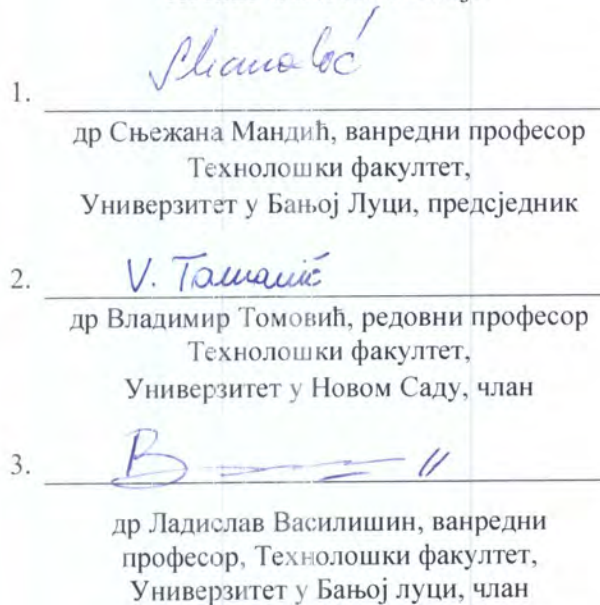 1.
др Сњежана Мандић, ванредни професор
Технолошки факултет,
Универзитет у Бањој Луци, предсједник
2. V.
др Владимир Томовић, редовни професор
Технолошки факултет,
Универзитет у Новом Саду, члан
3.
др Ладислав Василишин, ванредни
професор, Технолошки факултет,
Универзитет у Бањој луци, члан